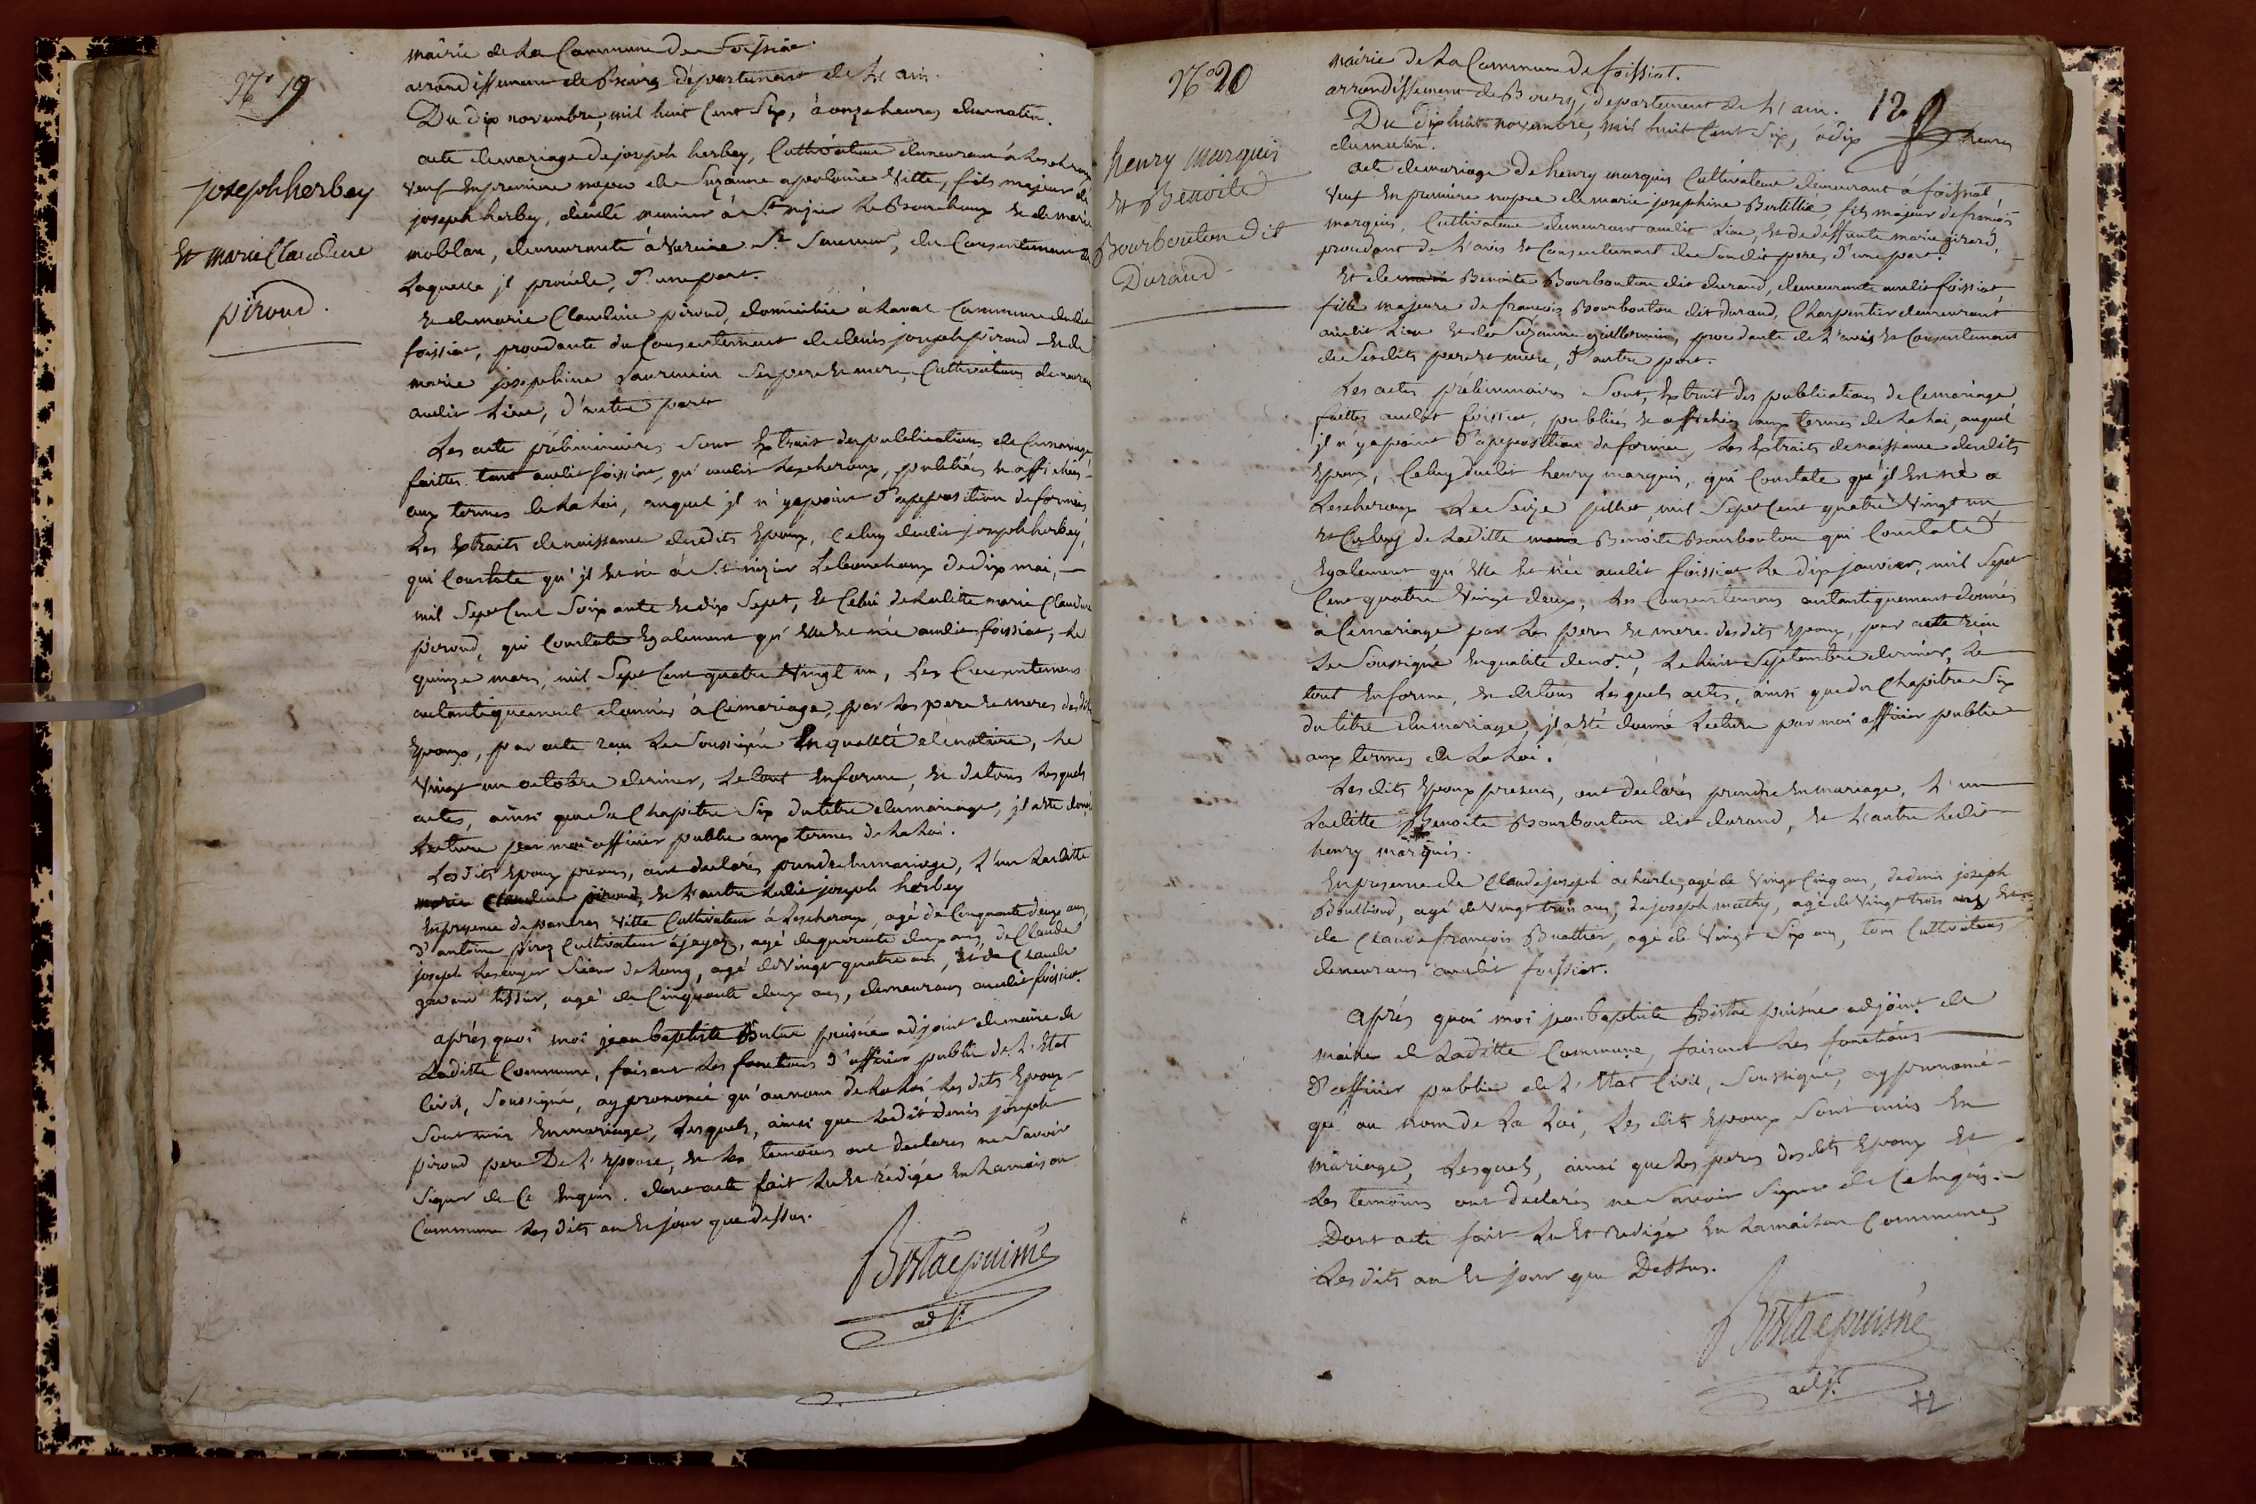 N.° 19
joseph herbey
Et marie Claudine
piroud.
mairie de La Commune de Foissiat.
arrondissement de Bourg département de L'ain.
Du dix novembre, mil huit Cent Six, à onze heures du matin.
acte de mariage de joseph herbey, Cultivateur demeurant à Lescheroux
veuf En premiere nopce de Suzanne apolonie Vitte, fils majeur de
joseph herbey, décédé meunier à S.t nizier Le Bouchoux Et de marie
moblan, demeurante à Varenne S.t Sauveur, du Consentement de
Laquelle jl procéde, d'une part.
Et de marie Claudine piroud, domiciliée à Laval Commune dudit
foissiat, procedante du Consentement de denis joseph piroud Et de
marie josephine Ses pere Et mere, Cultivateurs demeurans
audit Lieu, d'autre part
Les acte préliminaires Sont Extrait des publications de Ce mariage
faittes tant audit foissiat, qu'audit Lescheroux, publiées Et affichées
aux termes de La Loi, auquel jl n'y a point d'apposition de formée,
Les Extraits de naissance desdits Epoux, Celuy dudit joseph herbey,
qui Constate qu'jl Est né à S.t nizier Lebouchoux Le dix mai,
mil Sept Cent Soixante Et dix Sept, Et Celui de Laditte marie Claudine
piroud, qui Constate Egalement qu'Elle Est née audit foissiat, Le
quinze mars, mil Sept Cent quatre Vingt un, Les Consentemens
autantiquement donnés à Ce mariage, par Les pere Et meres desdits
Epoux, par acte reçu Le Soussigné En qualité de notaire, Le
Vingt un octobre dernier, Le tout En forme, Et de tous Lesquels
actes, ainsi que du Chapitre Six du titre du mariage, jl a Eté donné
Lecture par moi officier public aux termes de La Loi.
Lesdits Epoux présens, ont déclarés prendre En mariage, L'un Laditte
marie Claudine piroud, Et L'autre Ledit joseph herbey
En presence de Vitte Cultivateur à Lescheroux, agé de Cinquante deux ans,
d'antoine Cultivateur à jayat, agé de quarante deux ans, de Claude
joseph Scieur de Long, agé de Vingt quatre ans, Et de Claude
tissier, agé de Cinquante deux ans, demeurans audit foissiat.
après quoi moi jean baptiste Bistac puisné adjoint de maire de
Laditte Commune, faisant Les fonctions d'officier public de L'Etat
Civil, Soussigné, ay prononcé qu'au nom de La Loi Lesdits Epoux
Sont unis En mariage, Lesquels, ainsi que Ledit denis joseph
piroud pere De L'Epouse, Et Les temoins ont déclarés ne Savoir
Signer de Ce Enquis. dont acte fait Lu Et rédigé En La maison
Commune Les dits an Et jour que dessus.
Bistac puisné
adj.t
N.° 20
henry marquis
Et Benoite
Bourbouton dit
Durand
12
mairie de La Commune de foissiat.
arrondissement de Bourg, département de L'ain.
Du dix huit novembre, mil huit Cent Six, à dix heures
du matin.
acte de mariage de henry marquis Cultivateur demeurant à foissiat
Veuf En premiere nopce de marie josephine Bertillier, fils majeur de françois
marquis, Cultivateur demeurant audit Lieu, Et de deffunte marie girard,
procedant de L'avis Et Consentement de Sondit pere, d'une part.
Et de marie Benoite Bourbouton dit durand, demeurante audit foissiat
fille majeure de françois Bourbouton dit durand, Charpentier demeurant
audit Lieu Et de Suzanne guillermin, procedante de L'avis Et Consentement
de Sesdits pere Et mere, d'autre part.
Les actes préliminaires Sont, Extrait des publications de Ce mariage
faittes audit foissiat, publiées Et affichées aux termes de La Loi, auquel
jl n'y a point d'apposition de formée, Les Extraits de naissance desdits
Epoux, Celuy dudit henry marquis, qui Constate qu'jl Est né à
Lescheroux Le Seize juillet, mil Sept Cent quatre Vingt un,
Et Celuy de Laditte marie Benoite Bourbouton qui Constate
Egalement qu'Elle Est née audit foissiat Le dix janvier, mil Sept
Cent quatre Vingt deux, Les Consentemens autantiquement donnés
à Ce mariage par Les peres Et mere desdits Epoux, par acte reçu
Le Soussigné En qualité de no.re, Le huit Septembre dernier, Le
tout En forme, Et de tous Lesquels actes, ainsi que du Chapitre Six
du titre du mariage, jl a Eté donné Lecture par moi officier public
aux termes de La Loi.
Lesdits Epoux presens, ont déclarés prendre En mariage, L'un
Laditte Benoite Bourbouton dit durand, Et L'autre Ledit
henry marquis.
En presence de Claude joseph agé de Vingt Cinq ans, de denis joseph
agé de Vingt trois ans, de joseph mathy, agé de Vingt trois ans, Et
de Claude françois Buathier, agé de Vingt Six ans, tous Cultivateurs
demeurans audit foissiat.
après quoi moi jean baptiste Bistac puisné adjoint de
maire de Laditte Commune, faisant Les fonctions
d'officier public de L'Etat Civil, Soussigné, ay prononcé
qu'au nom de La Loi, Lesdits Epoux Sont unis En
mariage, Lesquels, ainsi que Les peres desdits Epoux Et
Les temoins ont déclarés ne Savoir Signer de Ce Enquis.
Dont acte fait Lu Et redigé En La maison Commune,
Les dits an Et jour que Dessus.
Bistac puisné
adj.t
72